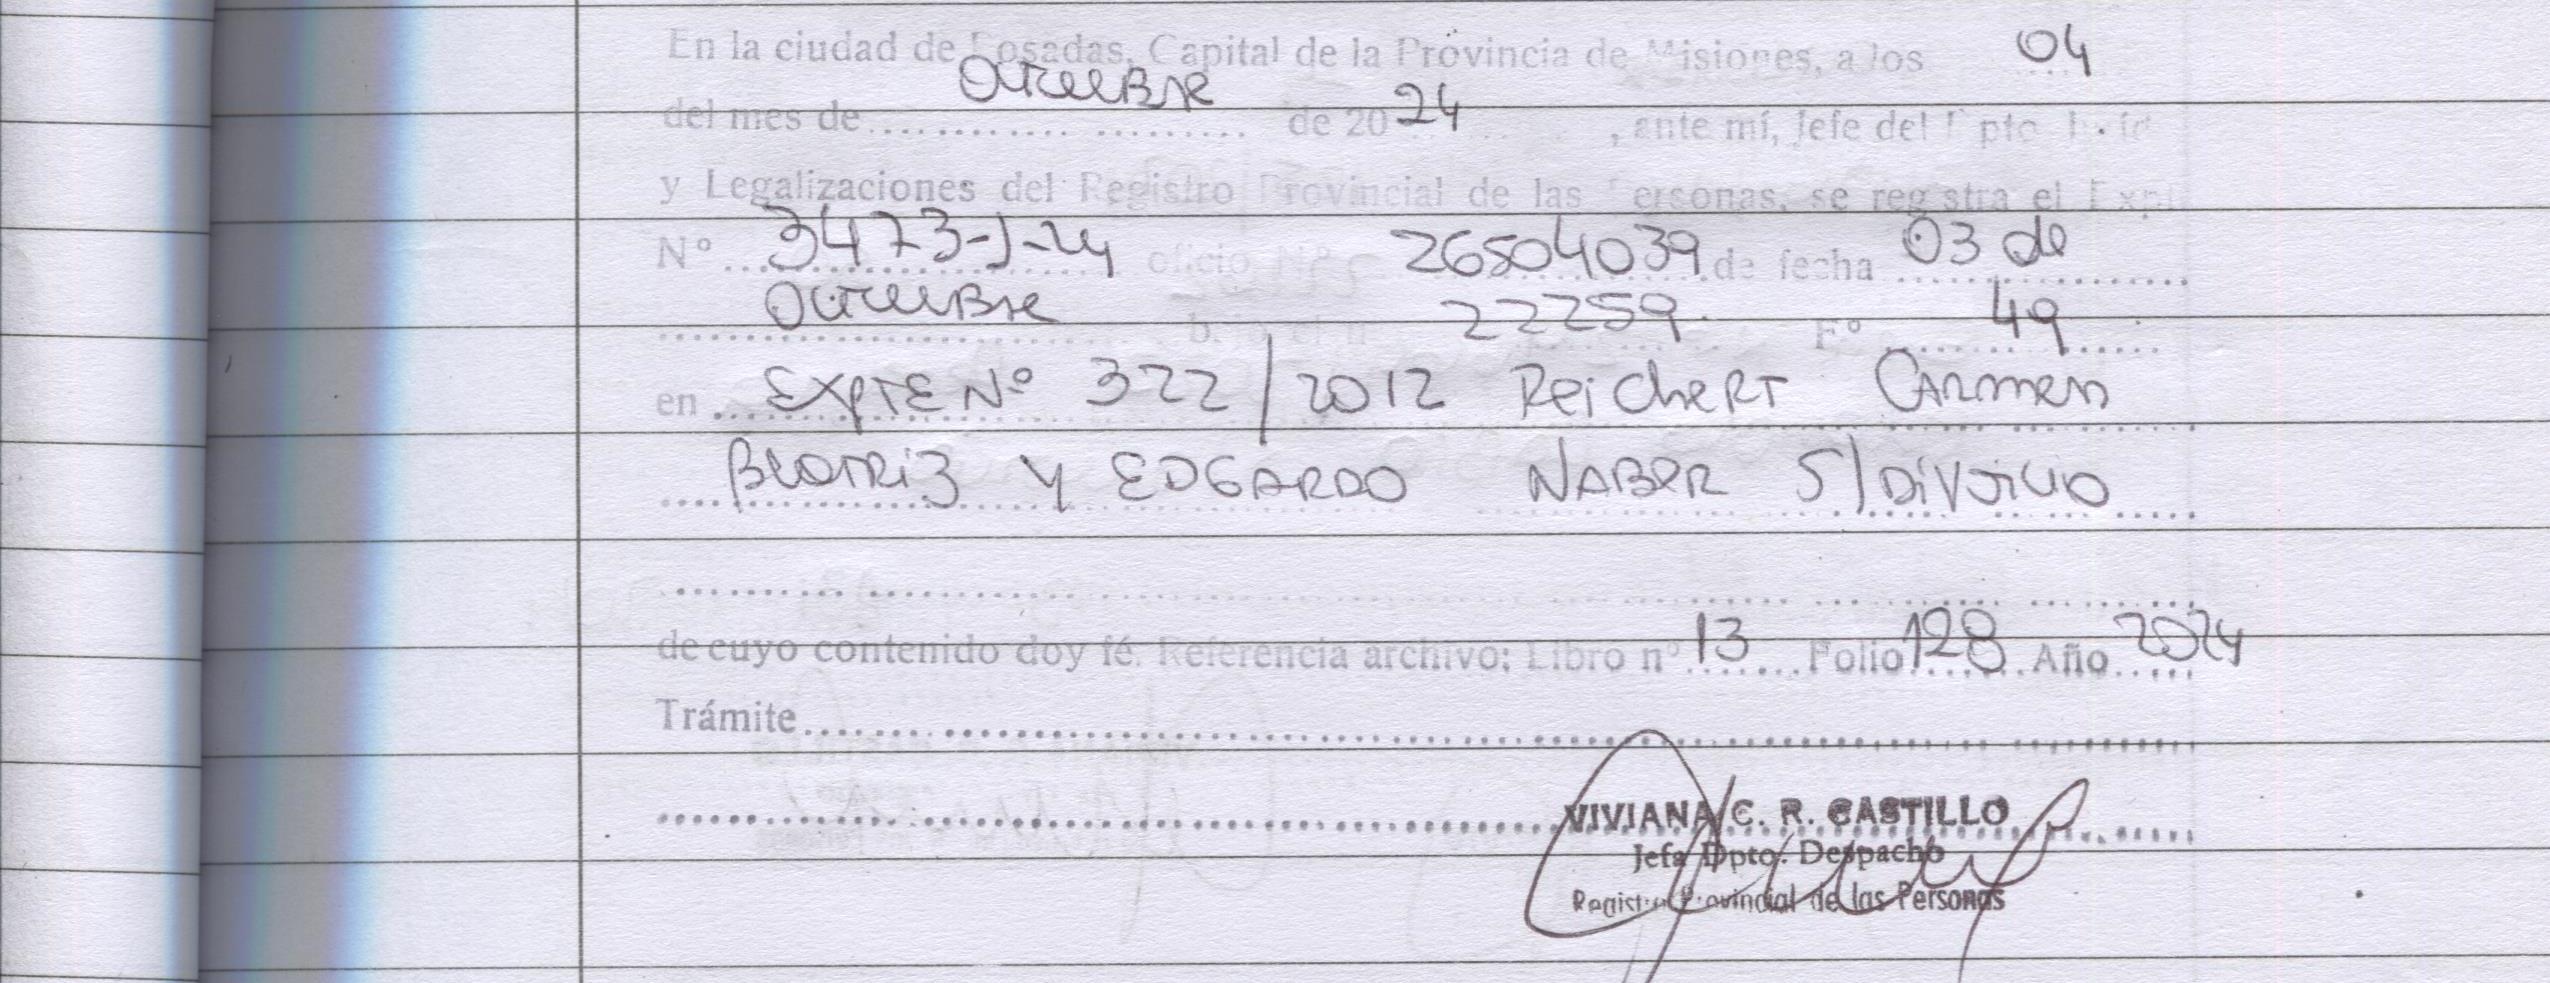 En la ciudad de Posadas, Capital de la Provincia de Misiones, a los 04
del mes de Octubre de 2024, ante mí, Jefe del Dpto.
y Legalizaciones del Registro Provincial de las Personas, se registra el Expte
Nº 3473-J-24 oficio Nº 26504039 de fecha 03 de
Octubre 22259 Fº 49
en EXPTE Nº 322/2012 Reichert Carmen
Beatriz y EDGARDO NABER S/Divorcio
de cuyo contenido doy fé. Referencia archivo: Libro nº 13 Folio 128 Año 2024
Trámite
VIVIANA C. R. CASTILLO
Jefa Dpto. Despacho
Registro Provincial de las Personas